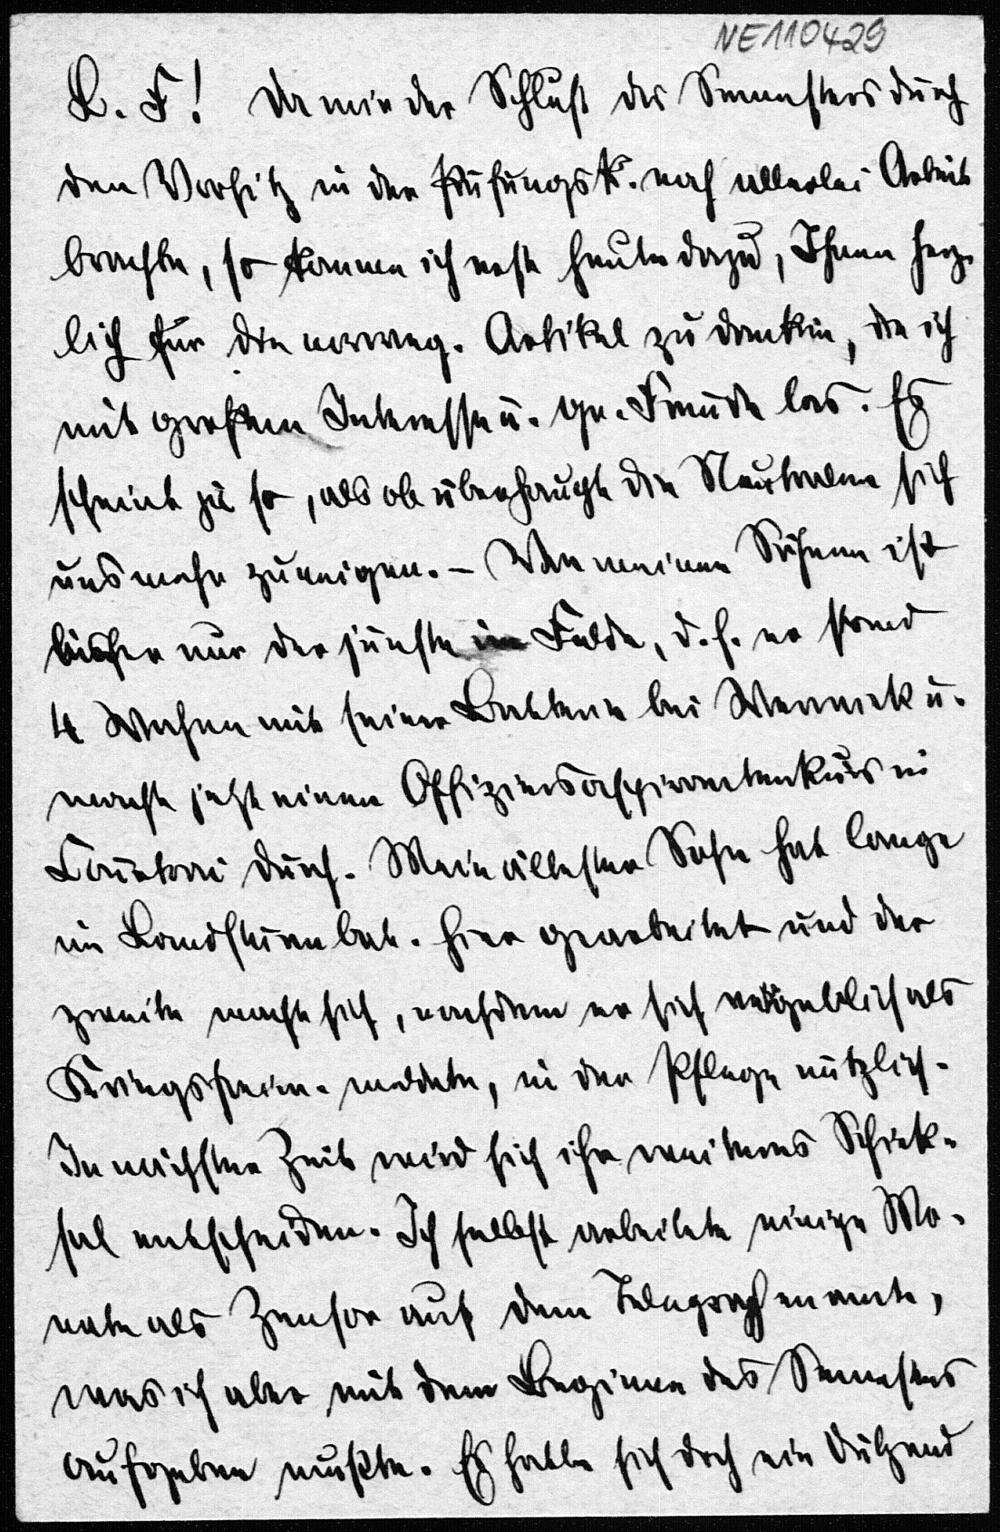 NE110429
L. F! Da mir der Schluß des Semesters durch
den Vorsitz in der Prüfungsk. noch allerlei Arbeit
brachte, so komme ich erst heute dazu, Ihnen herz-
lich für die norweg. Artikel zu danken, die ich
mit großem Interesse u. gr. Freude las. Es
scheint ja so, als ob überhaupt die Neutralen sich
uns mehr zuneigen. – Von meinen Söhnen ist
bisher nur der jünste im Felde, d. h. er stand
4 Wochen mit seiner Batterie bei Wervick u.
macht jetzt einen Offiziersaspirantenkurs in
Courtrai durch. Mein ältester Sohn hat lange
im Landsturmbat. hier gearbeitet und der
zweite macht sich, nachdem er sich vergeblich als
Kriegsfreiw. meldete, in der Pflege nützlich.
In nächster Zeit wird sich ihr weiteres Schick-
sal entscheiden. Ich selbst arbeitete einige Mo-
nate als Zensor auf dem Telegraphenamte,
was ich aber mit dem Beginne des Semesters
aufgeben mußte. Es hatte sich doch ein Dutzend